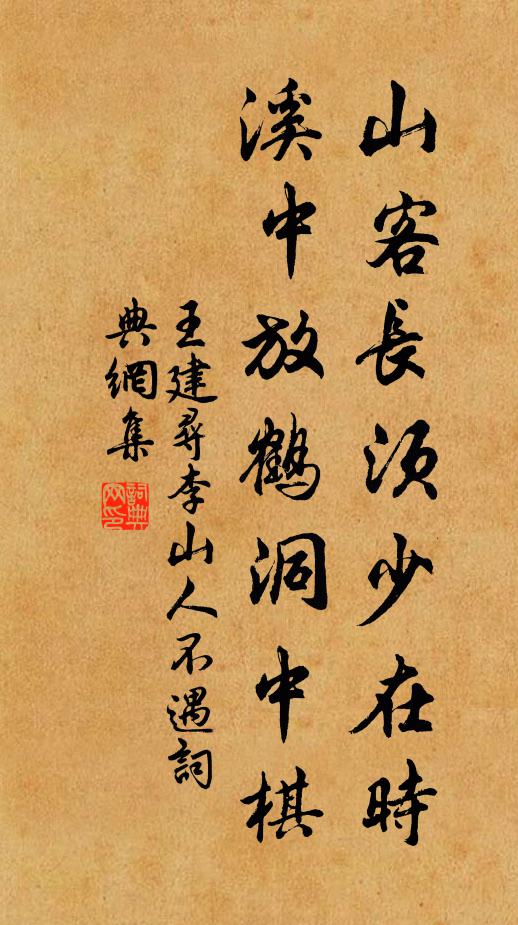 山客長須少在時
溪中放鶴洞中棋
王建尋李山人不遇詞
典網集
詞典網印